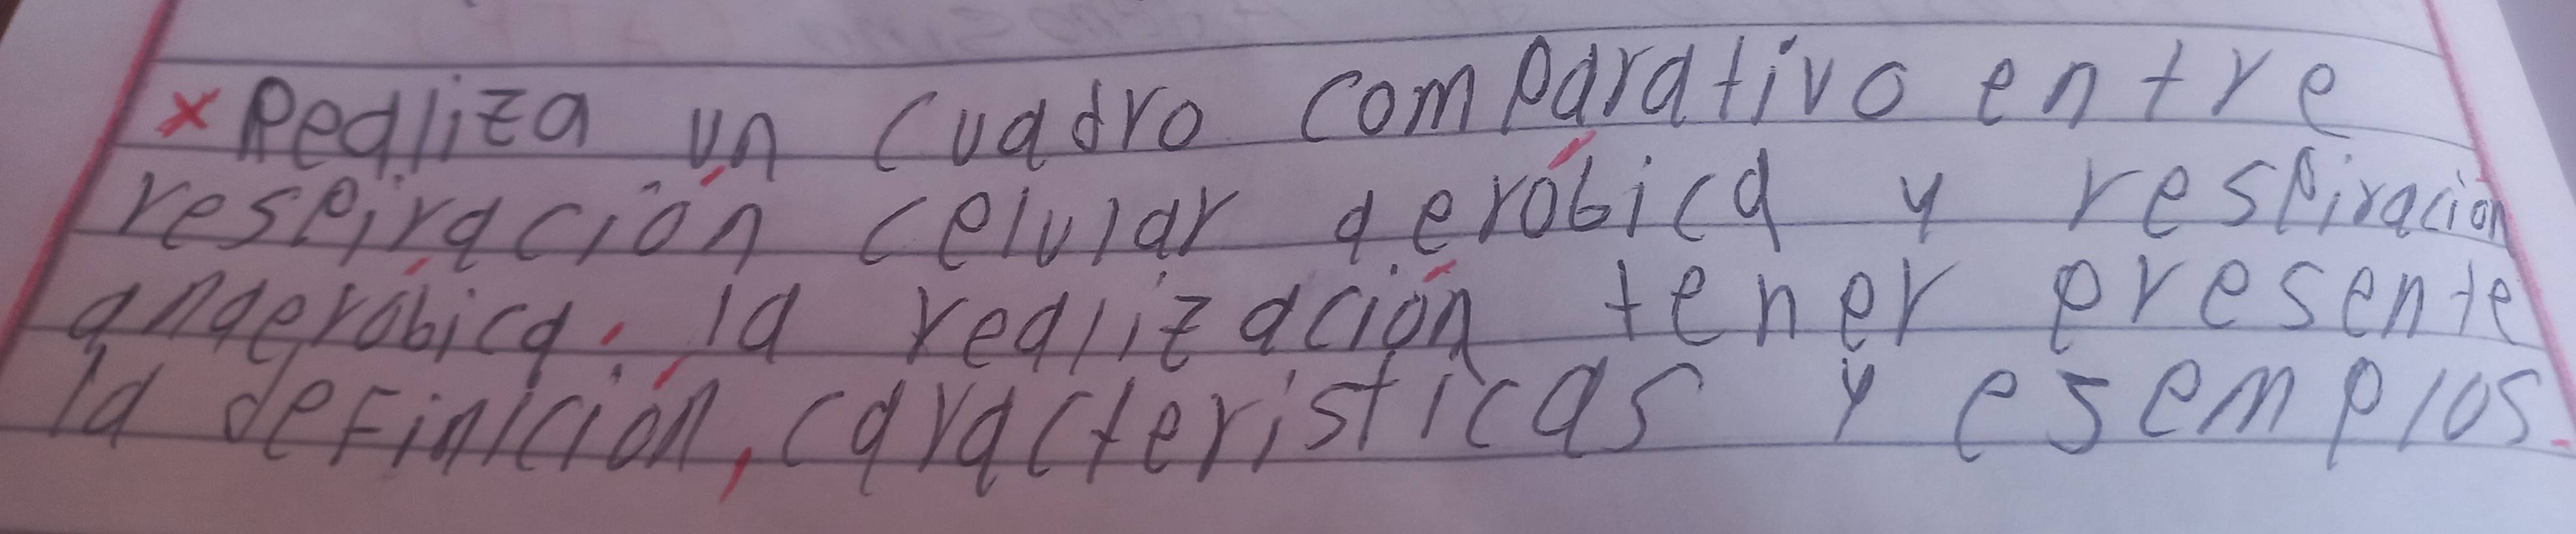 x Realiza un cuadro comparativo entre
respiración celular aeróbica y respiración
anaeróbica. la realización tener presente
la definición, caracteristicas y esemplos.